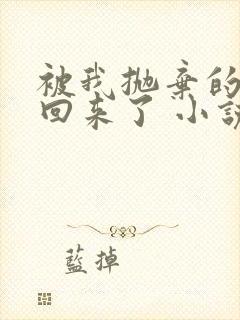 被我抛棄的
回来了 小説
藍掉